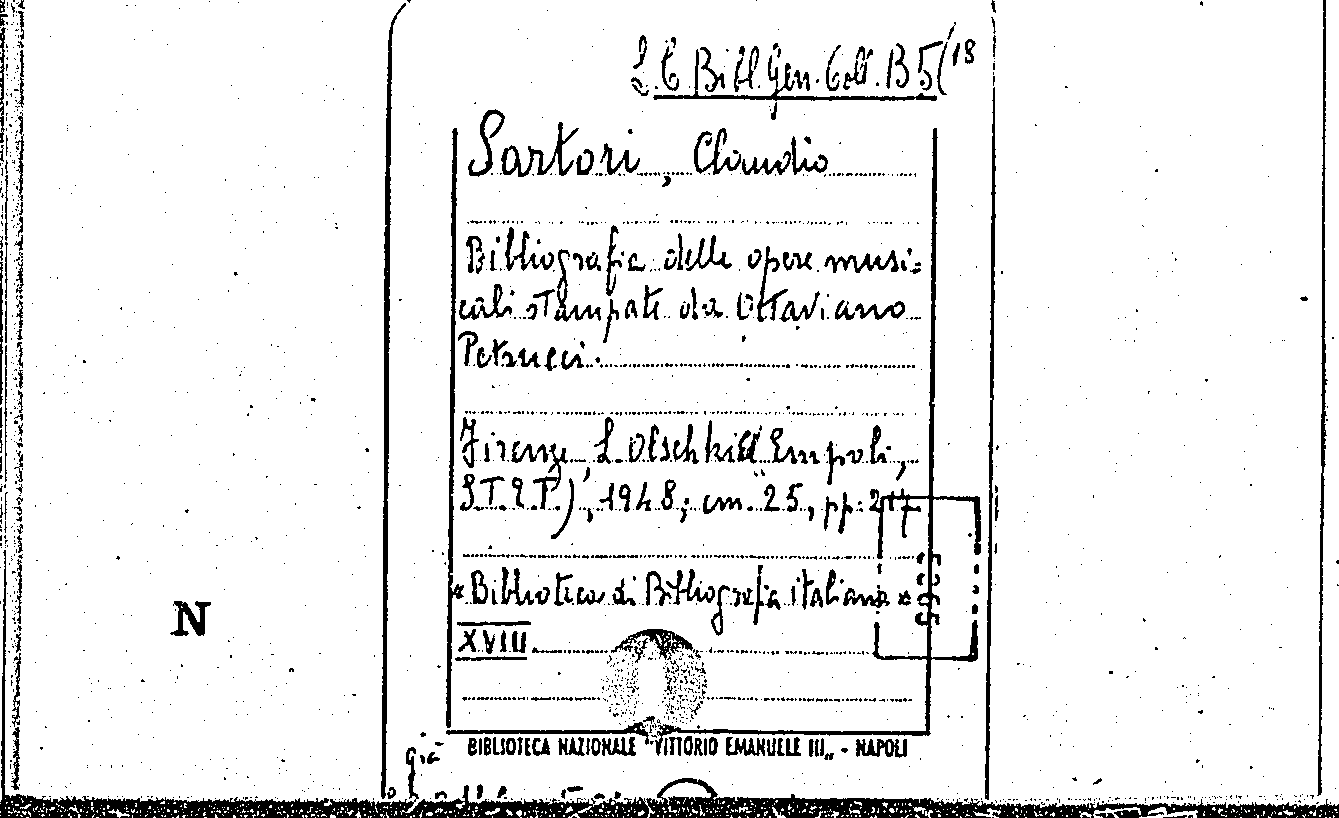 L.C. Bibl. Gen. Coll. B 5(18
Sartori, Claudio
Bibliografia delle opere musi=
cali stampate da Ottaviano
Petrucci.
Firenze, L. Olschki (Empoli,
S.T.E.T.), 1948; cm. 25, pp. 217
«Biblioteca di Bibliografia italiana»
XVIII.
N
BIBLIOTECA NAZIONALE "VITTORIO EMANUELE III„ - NAPOLI
già